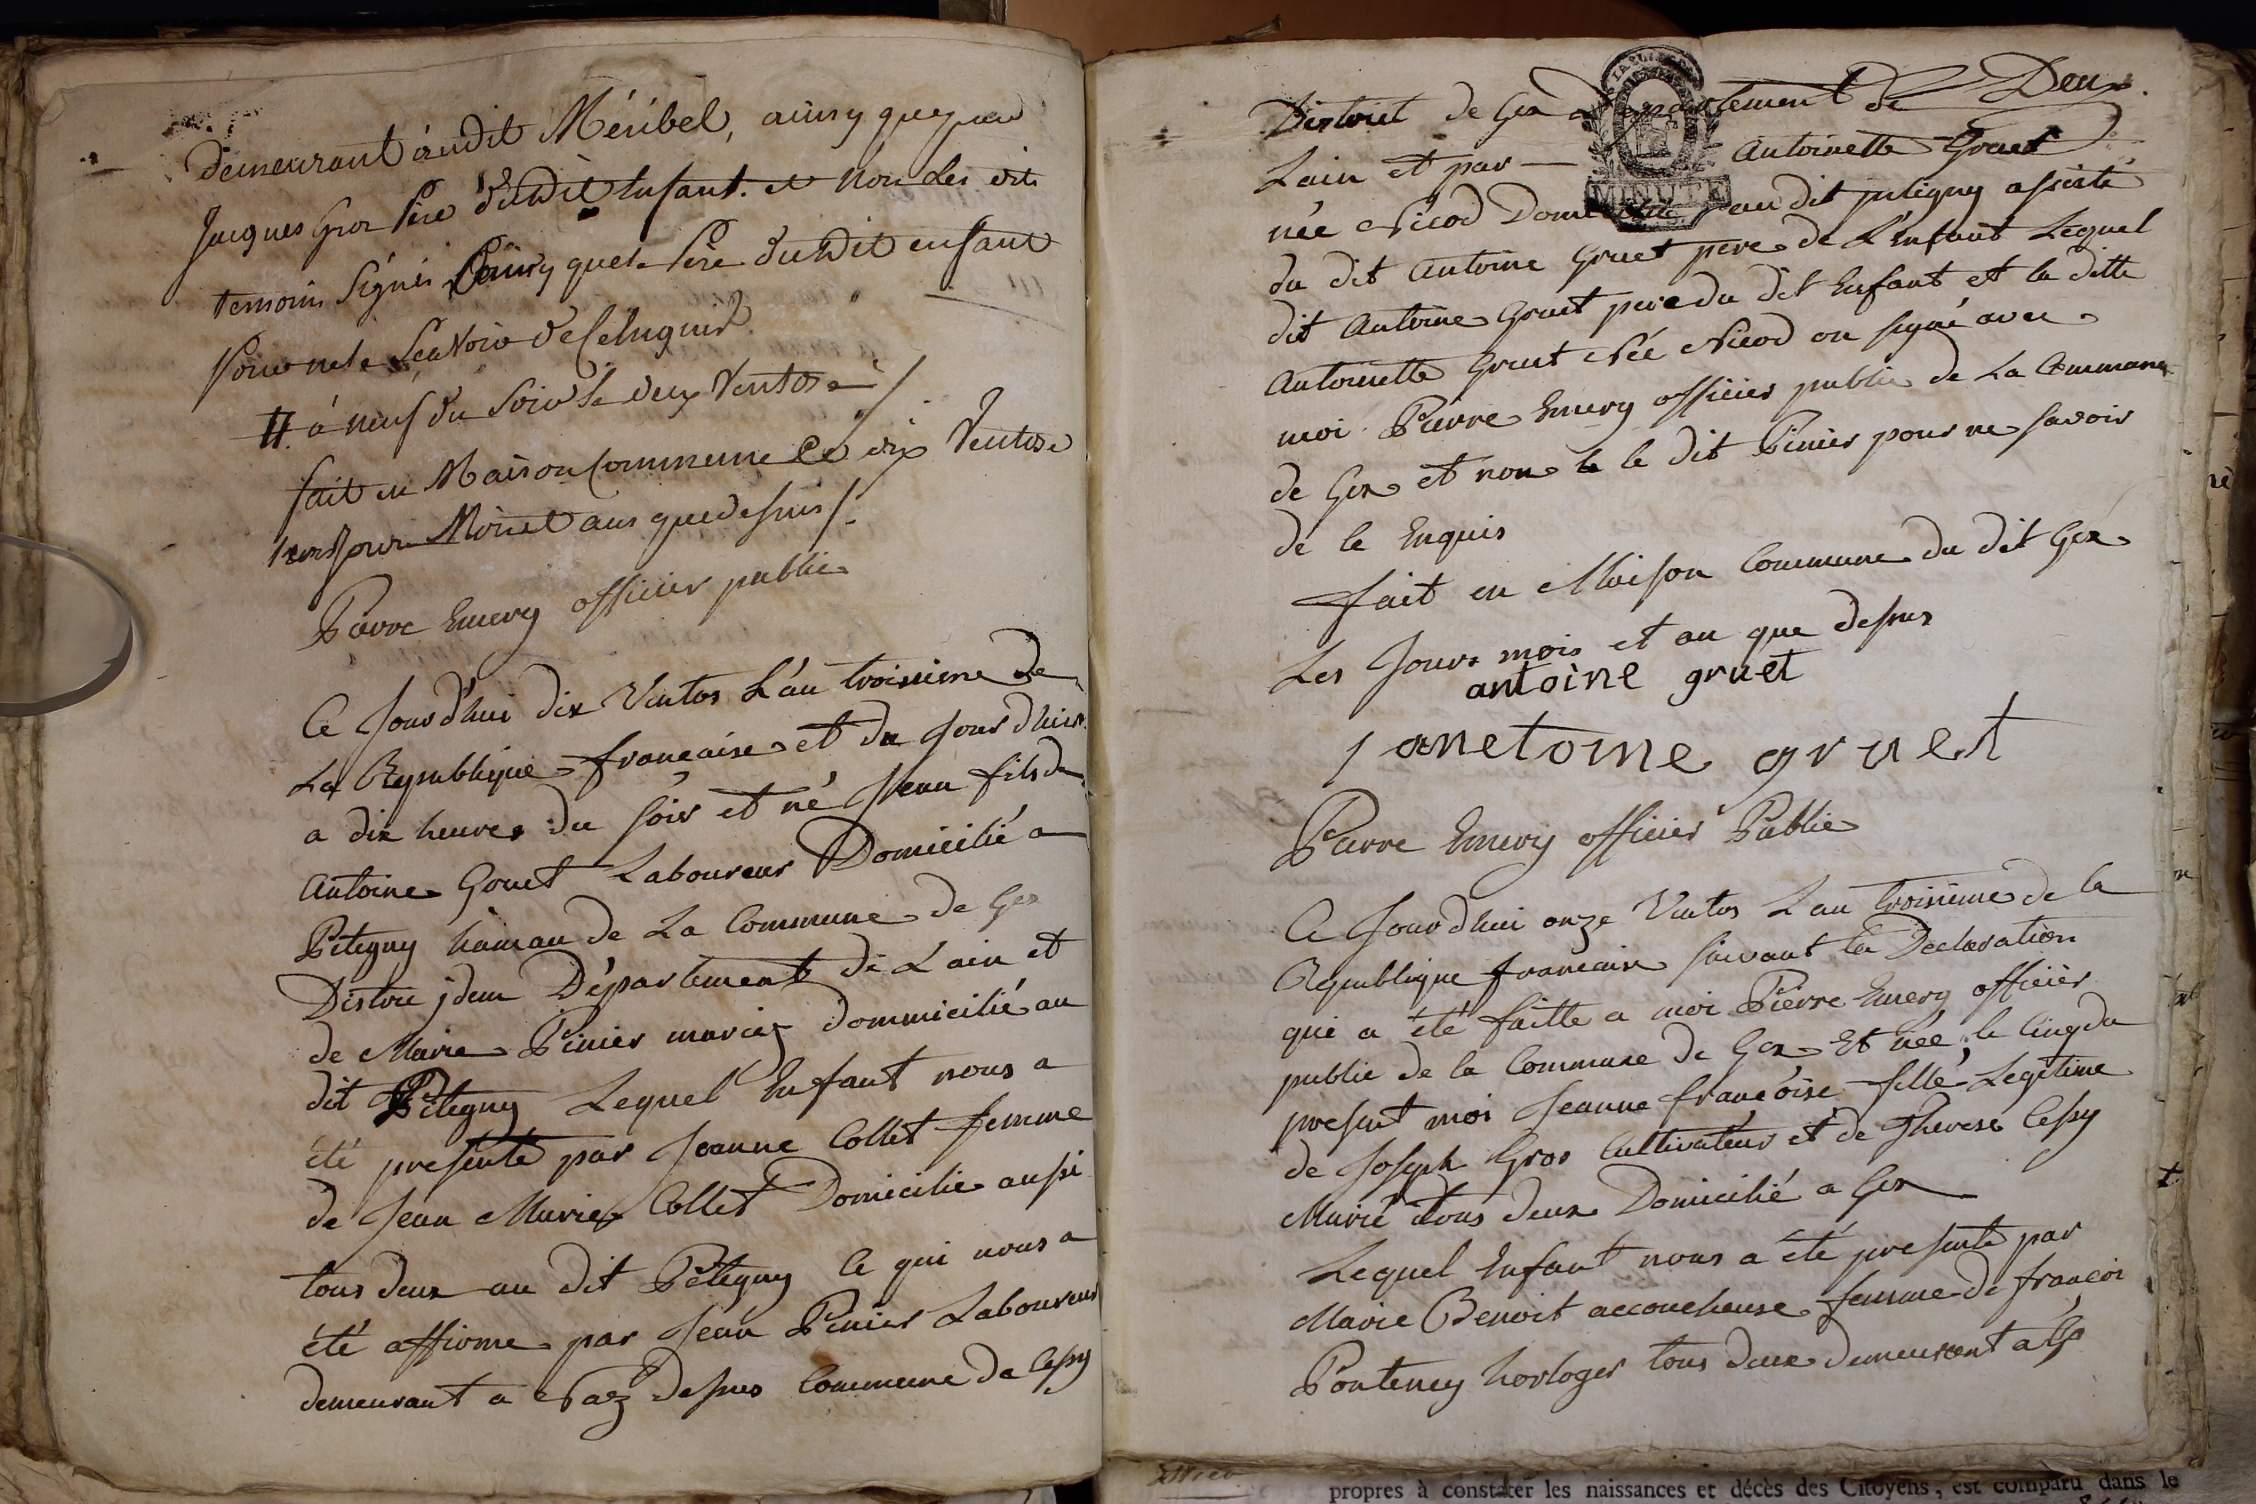 demeurant audit Méribel, ainsy que
Jacques Gros Père dudit Enfant. et non les dits
temoins Signés ainsy que le Père dudit enfant
Pour ne le Scavoir de Ce Enquis
# à neuf du Soir le deux Ventose /
fait en Maison Commune Ce dix Ventose
Pierre Emery officier public
Ce Jourd'hui dix Vintos L'an troisieme de
La Republique francaise et du Jour d'hier
a dix heures du soir et né Jean fils de
Antoine Gruet Laboureur Domicilié a
Pitegny hamau de La Commune de Gex
Distric jdem Département de L'ain et
de Marie Pinier mariez dommicilié au
dit Pitegny Lequel Enfant nous a
été presenté par Jeanne Collet femme
de Jean Marie Collet Domicilie aussi
tous deux au dit Pitegny Ce qui nous a
été affirme par Jean Pinier Laboureur
demeurant a Naz dessus Commune de Cessy
Deux.
District de Gex Departement de
Lain et par — Antoinette Gruet
née Nicod audit pitigny assisté
du dit Antoine Gruet pere de L'Enfant Lequel
dit Antoine Gruet pere du dit Enfant et la ditte
Antoinette Gruet Née Nicod on signé avec
moi Pierre Emery officier public de La Commune
de Gex et non le le dit Pinier pour ne savoir
de ce Enquis
fait en Maison Commune du dit Gex
Les Jours mois et an que dessus
antoine gruet
anetoine gruet
Pierre Emery officier Public
Ce Jourd'hui onze Vintos L'an troisieme de la
Republique francaise suivant la Declaration
qui a été faitte a moi Pierre Emery officier
public de la Commune de Gex Et née le Cinq du
present mois Jeanne françoise fille Legetime
de Joseph Gros Cultivateur et de Therese Cessy
Marié tous deux Domicilié a Gex
Lequel Enfant nous a été presente par
Marie Benoit accoucheuse femme de françois
Ponteney horloger tous deux demeurent a Gex
propres à constater les naissances et décès des Citoyens, est comparu dans le